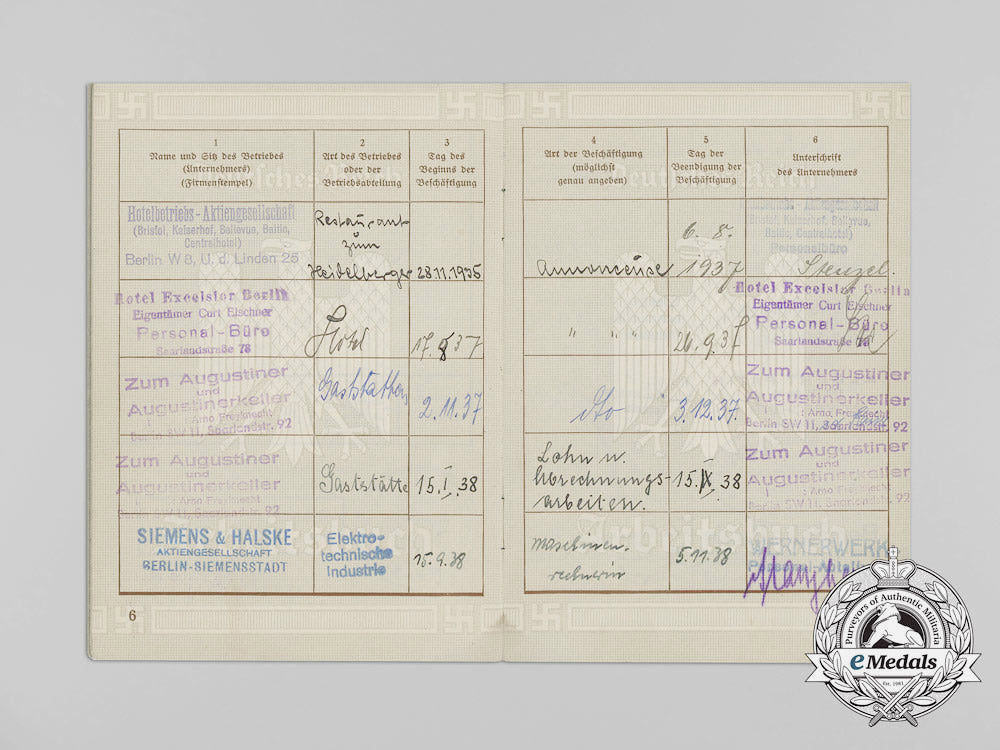 1
Name und Sitz des Betriebes
(Unternehmers)
(Firmenstempel)
2
Art des Betriebes
oder der
Betriebsabteilung
3
Tag des
Beginns der
Beschäftigung
Hotelbetriebs-Aktiengesellschaft
(Bristol, Kaiserhof, Bellevue, Baltic,
Centralhotel)
Berlin W 8, U. d. Linden 25
Restaurant
zum
Heidelberger
28.11.1935
Hotel Excelsior Berlin
Eigentümer Curt Elschner
Personal-Büro
Saarlandstraße 78
Hotel
17.8.37
Zum Augustiner
und
Augustinerkeller
Arno Freyknecht
Berlin SW 11, Saarlandstr. 92
2.11.37
Zum Augustiner
und
Augustinerkeller
Arno Freyknecht
Berlin SW 11, Saarlandstr. 92
Gaststätte
15. I. 38
SIEMENS & HALSKE
AKTIENGESELLSCHAFT
BERLIN-SIEMENSSTADT
Elektro-
technische
Industrie
15.9.38
6
Arbeitsbuch
4
Art der Beschäftigung
(möglichst
genau angeben)
5
Tag der
Beendigung der
Beschäftigung
6
Unterschrift
des Unternehmers
Deutsches Reich
Annonceuse
6. 8.
1937
Hotelbetriebs-Aktiengesellschaft
(Bristol, Kaiserhof, Bellevue,
Baltic, Centralhotel)
Personalbüro
Stenzel.
" " "
26.9.37
Hotel Excelsior Berlin
Eigentümer Curt Elschner
Personal-Büro
Saarlandstraße 78
dto
3.12.37.
Zum Augustiner
und
Augustinerkeller
Arno Freyknecht
Berlin SW 11, Saarlandstr. 92
Lohn u.
Abrechnungs-
arbeiten.
15. IX. 38
Zum Augustiner
und
Augustinerkeller
Arno Freyknecht
Berlin SW 11, Saarlandstr. 92
Maschinen-
rechnerin
5.11.38
WERNERWERK
Arbeitsbuch
Purveyors of Authentic Militaria
eMedals
Est. 1981